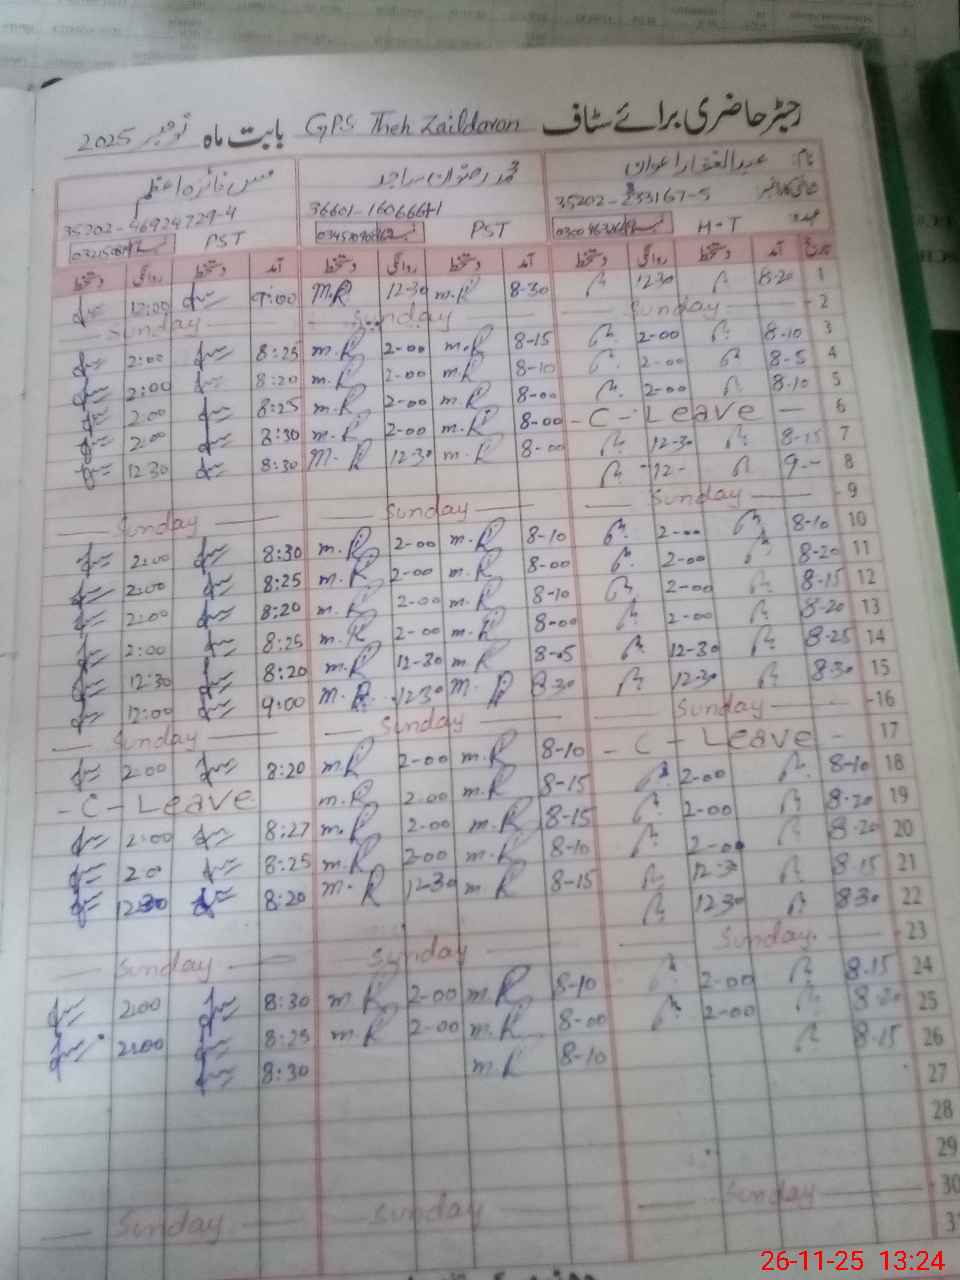 رجسٹر حاضری برائے سٹاف GPS Theh Zaildaran بابت ماہ نومبر 2025
نام: عبدالغفار اعوان محمد رضوان ساجد مس فائزہ اعظم
35202-46924729-4
PST PST H-T
تاریخ آمد دستخط روانگی دستخط آمد دستخط روانگی دستخط آمد دستخط روانگی دستخط
1 8-20 12-30 8-30 M.R 12-30 m.R 9:00 12:00
2 Sunday Sunday Sunday
3 8-10 2-00 8-15 m.R 2-00 m.R 8:25 2:00
4 8-5 2-00 8-10 m.R 2-00 m.R 8:20 2:00
5 8-10 2-00 8-00 m.R 2-00 m.R 8:25 2:00
6 - C - Leave - 8-00 m.R 2-00 m.R 8:30 2:00
7 8-15 12-30 8-00 m.R 12-30 M.R 8:30 12:30
8 9-- 12-
9 Sunday Sunday Sunday
10 8-10 2-00 8-10 m.R 2-00 m.R 8:30 2:00
11 8-20 2-00 8-00 m.R 2-00 m.R 8:25 2:00
12 8-15 2-00 8-10 m.R 2-00 m.R 8:20 2:00
13 8-20 2-00 8-00 m.R 2-00 m.R 8:25 2:00
14 8-25 12-30 8-05 m.R 12-30 m.R 8:20 12:30
15 8-30 12-30 8-30 M.R 12-30 M.R. 9:00 12:00
16 Sunday Sunday Sunday
17 - C - Leave - 8-10 m.R 2-00 m.R 8:20 2:00
18 8-10 2-00 8-15 m.R 2-00 m.R - C - Leave
19 8-20 2-00 8-15 m.R 2-00 m.R 8:27 2:00
20 8-20 2-00 8-10 m.R 2-00 m.R 8:25 2:00
21 8-15 12-3 8-15 m.R 12-30 m.R 8:20 12:30
22 8-30 12-30
23 Sunday Sunday Sunday
24 8-15 2-00 8-10 m.R 2-00 m.R 8:30 2:00
25 8-20 2-00 8-00 m.R 2-00 m.R 8:25 2:00
26 8-15 8-10 m.R 8:30
27
28
29
30 Sunday Sunday Sunday
26-11-25 13:24